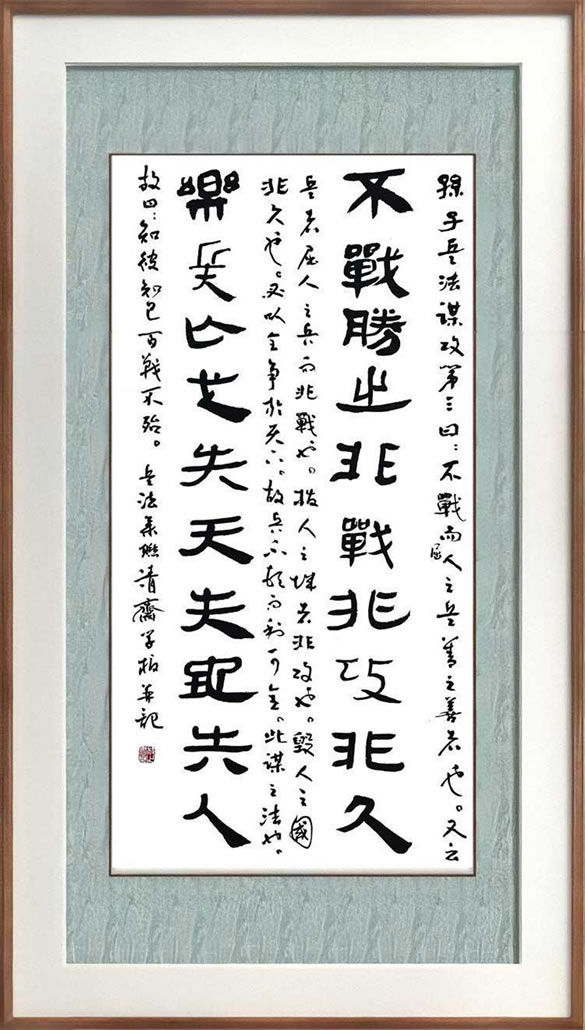 孫子兵法謀攻第三曰：不戰而屈人之兵善之善者也。又云
不戰勝之非戰非攻非久
兵者屈人之兵而非戰也。拔人之城者非攻也。毀人之國
非久也。必以全爭於天下。故兵不頓而利可全。此謀之法也。
樂兵亡失天失地失人
故曰：知彼知己百戰不殆。兵法集聯清齋學柏并記